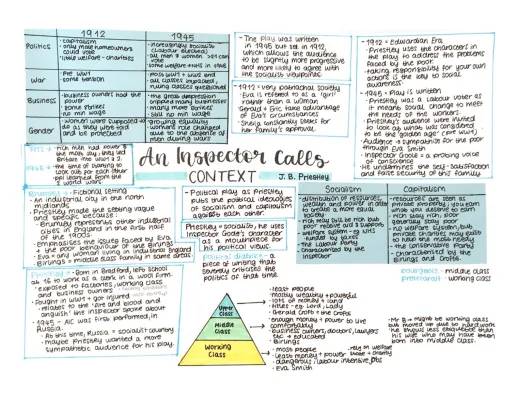 1912
1945
Politics
- capitalism
- only male homeowners could vote
- little welfare - charities
- increasingly socialist
(Labour elected)
- all men & women >21 can vote
- some welfare + NHS in time
War
- Pre WW1
- some tension
- Post WW1 + WW2 end
- all classes impacted,
ruling classes questioned
Business
- business owners had the
power
- some strikes
- no min wage
- the great depression
crippled many businesses
- many more strikes
- still no min wage
Gender
- women were supposed to
do as they were told
and be protected
- growing equality
- women's role changed
due to the absence of
men during wars
- The play was written
in 1945 but set in 1912,
which allows the audience
to be slightly more progressive
and more likely to agree with
the socialist viewpoints
- 1912 = very patriarchal society
- Eva is referred to as a 'girl'
rather than a woman
- Gerald & Eric take advantage
of Eva's circumstances
- Sheila constantly looks for
her family's approval.
- 1912 = Edwardian Era
- Priestley uses the characters in
the play to address the problems
faced by the poor
- taking responsibility for your own
actions is the key to social
awareness
- 1945 = Play is written
- Priestley was a Labour voter as
it meant social change to meet
the needs of the workers.
- Priestley's audience were invited
to look at what was considered
to be the 'golden age' (pre WW1)
- Audience = sympathy for the poor
through Eva Smith
- Inspector Goole = a probing voice
of conscience
- He undermines the self-satisfaction
and false security of this family
An Inspector Calls
CONTEXT
J. B. Priestley
- Fictional setting
- An industrial city in the north
midlands
- Priestley made the setting vague
and specific because:
- Brumley represents other industrial
cities in England in the first half
of the 1900s
- Emphasises the issues faced by Eva
& the poor behaviour of the Birlings
- Eva = any woman living in industrial England
- Birlings = middle class family in same areas
- Political play as Priestley
puts the political ideologies
of socialism and capitalism
against each other.
- Priestley = socialist, he uses
Inspector Goole's character
as a mouthpiece for
his political views.
piece of writing that
severely criticises the
politics of that time.
Socialism
- distribution of resources,
wealth and power in order
to create a more equal
society
- rich may still be rich but
poor receive aid & support
- welfare system - eg NHS
funded by taxes
- the Labour Party
- Characterised by the
Inspector
Capitalism
- resources are seen as
private property, you earn
what you deserve to earn
- rich stay rich, poor
generally stay poor
- no welfare system, but
private charities may exist
to help the most needy
- the Conservative Party
- characterised by the
Birlings and Crofts
bourgeoisie - middle class
proletariat - working class
- Born in Bradford, left school
at 16 to work as a clerk in a wool firm.
- exposed to factories, working class
and business owners
- fought in WW1 + got injured
- relates to the 'fire and blood and
anguish' the inspector spoke about
- 1945 - AIC was first performed, in
Russia.
- At this time, Russia = socialist country
- maybe Priestley wanted a more
sympathetic audience for his play.
Upper Class
- least people
- mostly wealthy + powerful
- lots of money & land
- titles - eg. Lord, Lady
- Gerald Croft & the Crofts
Middle Class
- enough money + power to live
comfortably
- business owners, doctors, lawyers
etc = educated
- Birlings
Working Class
- most people
- least money + power
- dangerous, labour intensive jobs
- Eva Smith
- Mr B = might be working class
but moved up due to hard work